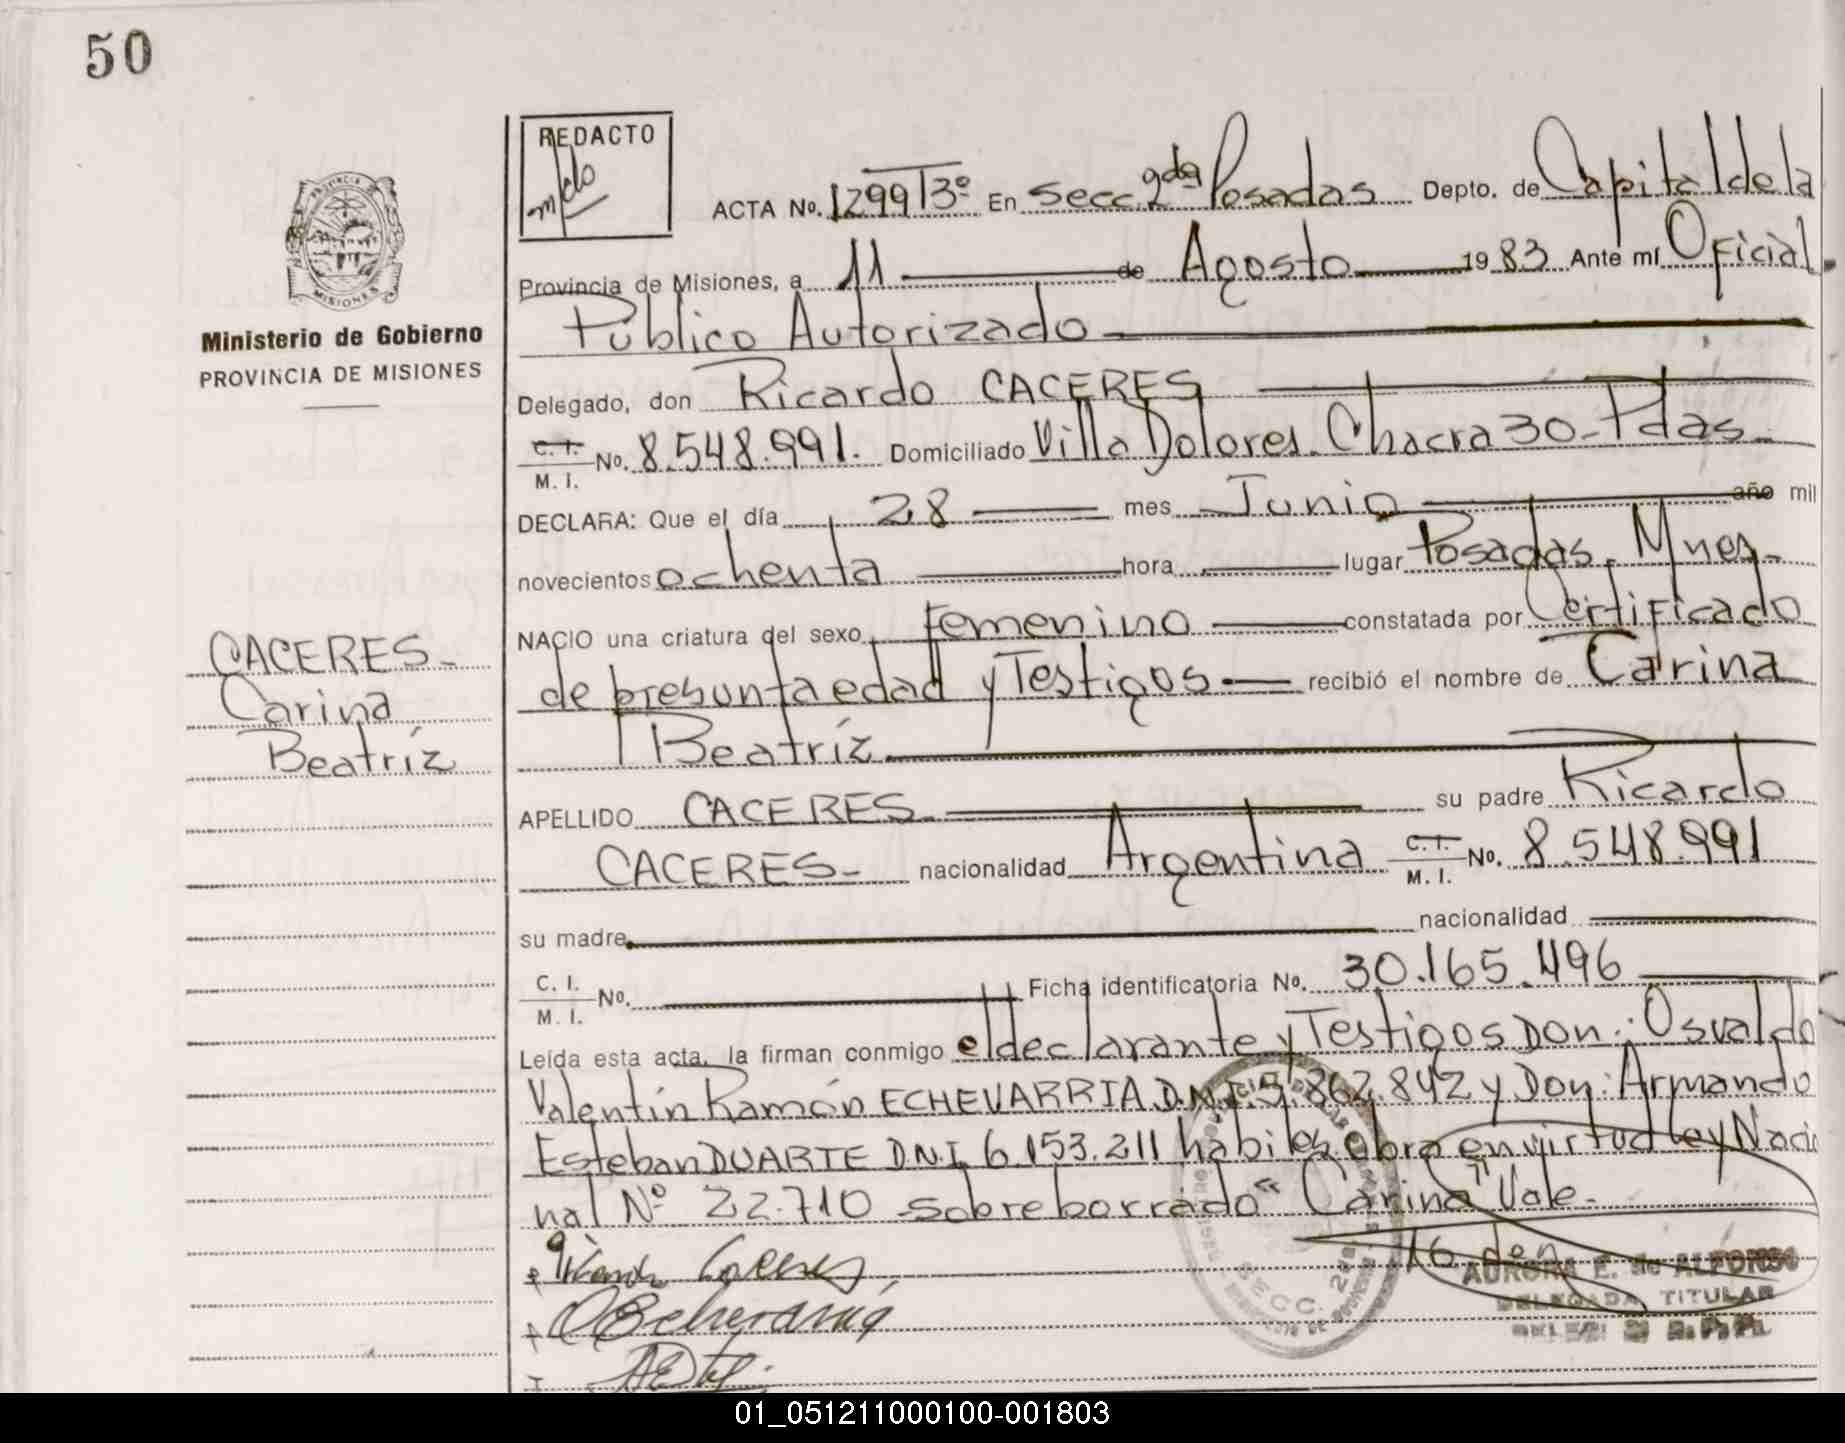 50
REDACTO
ACTA No. 1299 T3º En Secc. 2da Posadas Depto. de Capital de la
Provincia de Misiones, a 11 de Agosto 1983 Ante mí Oficial
Público Autorizado
Ministerio de Gobierno
PROVINCIA DE MISIONES
Delegado, don Ricardo CACERES
C. I. M. I. No. 8.548.991. Domiciliado Villa Dolores. Chacra 30-Pdas-
DECLARA: Que el día 28 mes Junio año mil
novecientos ochenta hora lugar Posadas. Mnes-
NACIO una criatura del sexo femenino constatada por Certificado
de presunta edad y Testigos recibió el nombre de Carina
Beatríz
CACERES-
Carina
Beatríz
APELLIDO CACERES su padre Ricardo
CACERES- nacionalidad Argentina C. I. M. I. No. 8.548.991
su madre nacionalidad
C. I. M. I. No. Ficha identificatoria No. 30.165.496
Leída esta acta, la firman conmigo el declarante y Testigos Don: Osvaldo
Valentín Ramón ECHEVARRIA D.N.I. 5.862.842 y Don: Armando
Esteban DUARTE D.N.I. 6.153.211 habiles obra en virtud ley Nacio
nal Nº 22.710 sobreborrado "Carina" Vale-
AURORA E. de ALFONSO
DELEGADA TITULAR
SECC. 2da
01_051211000100-001803